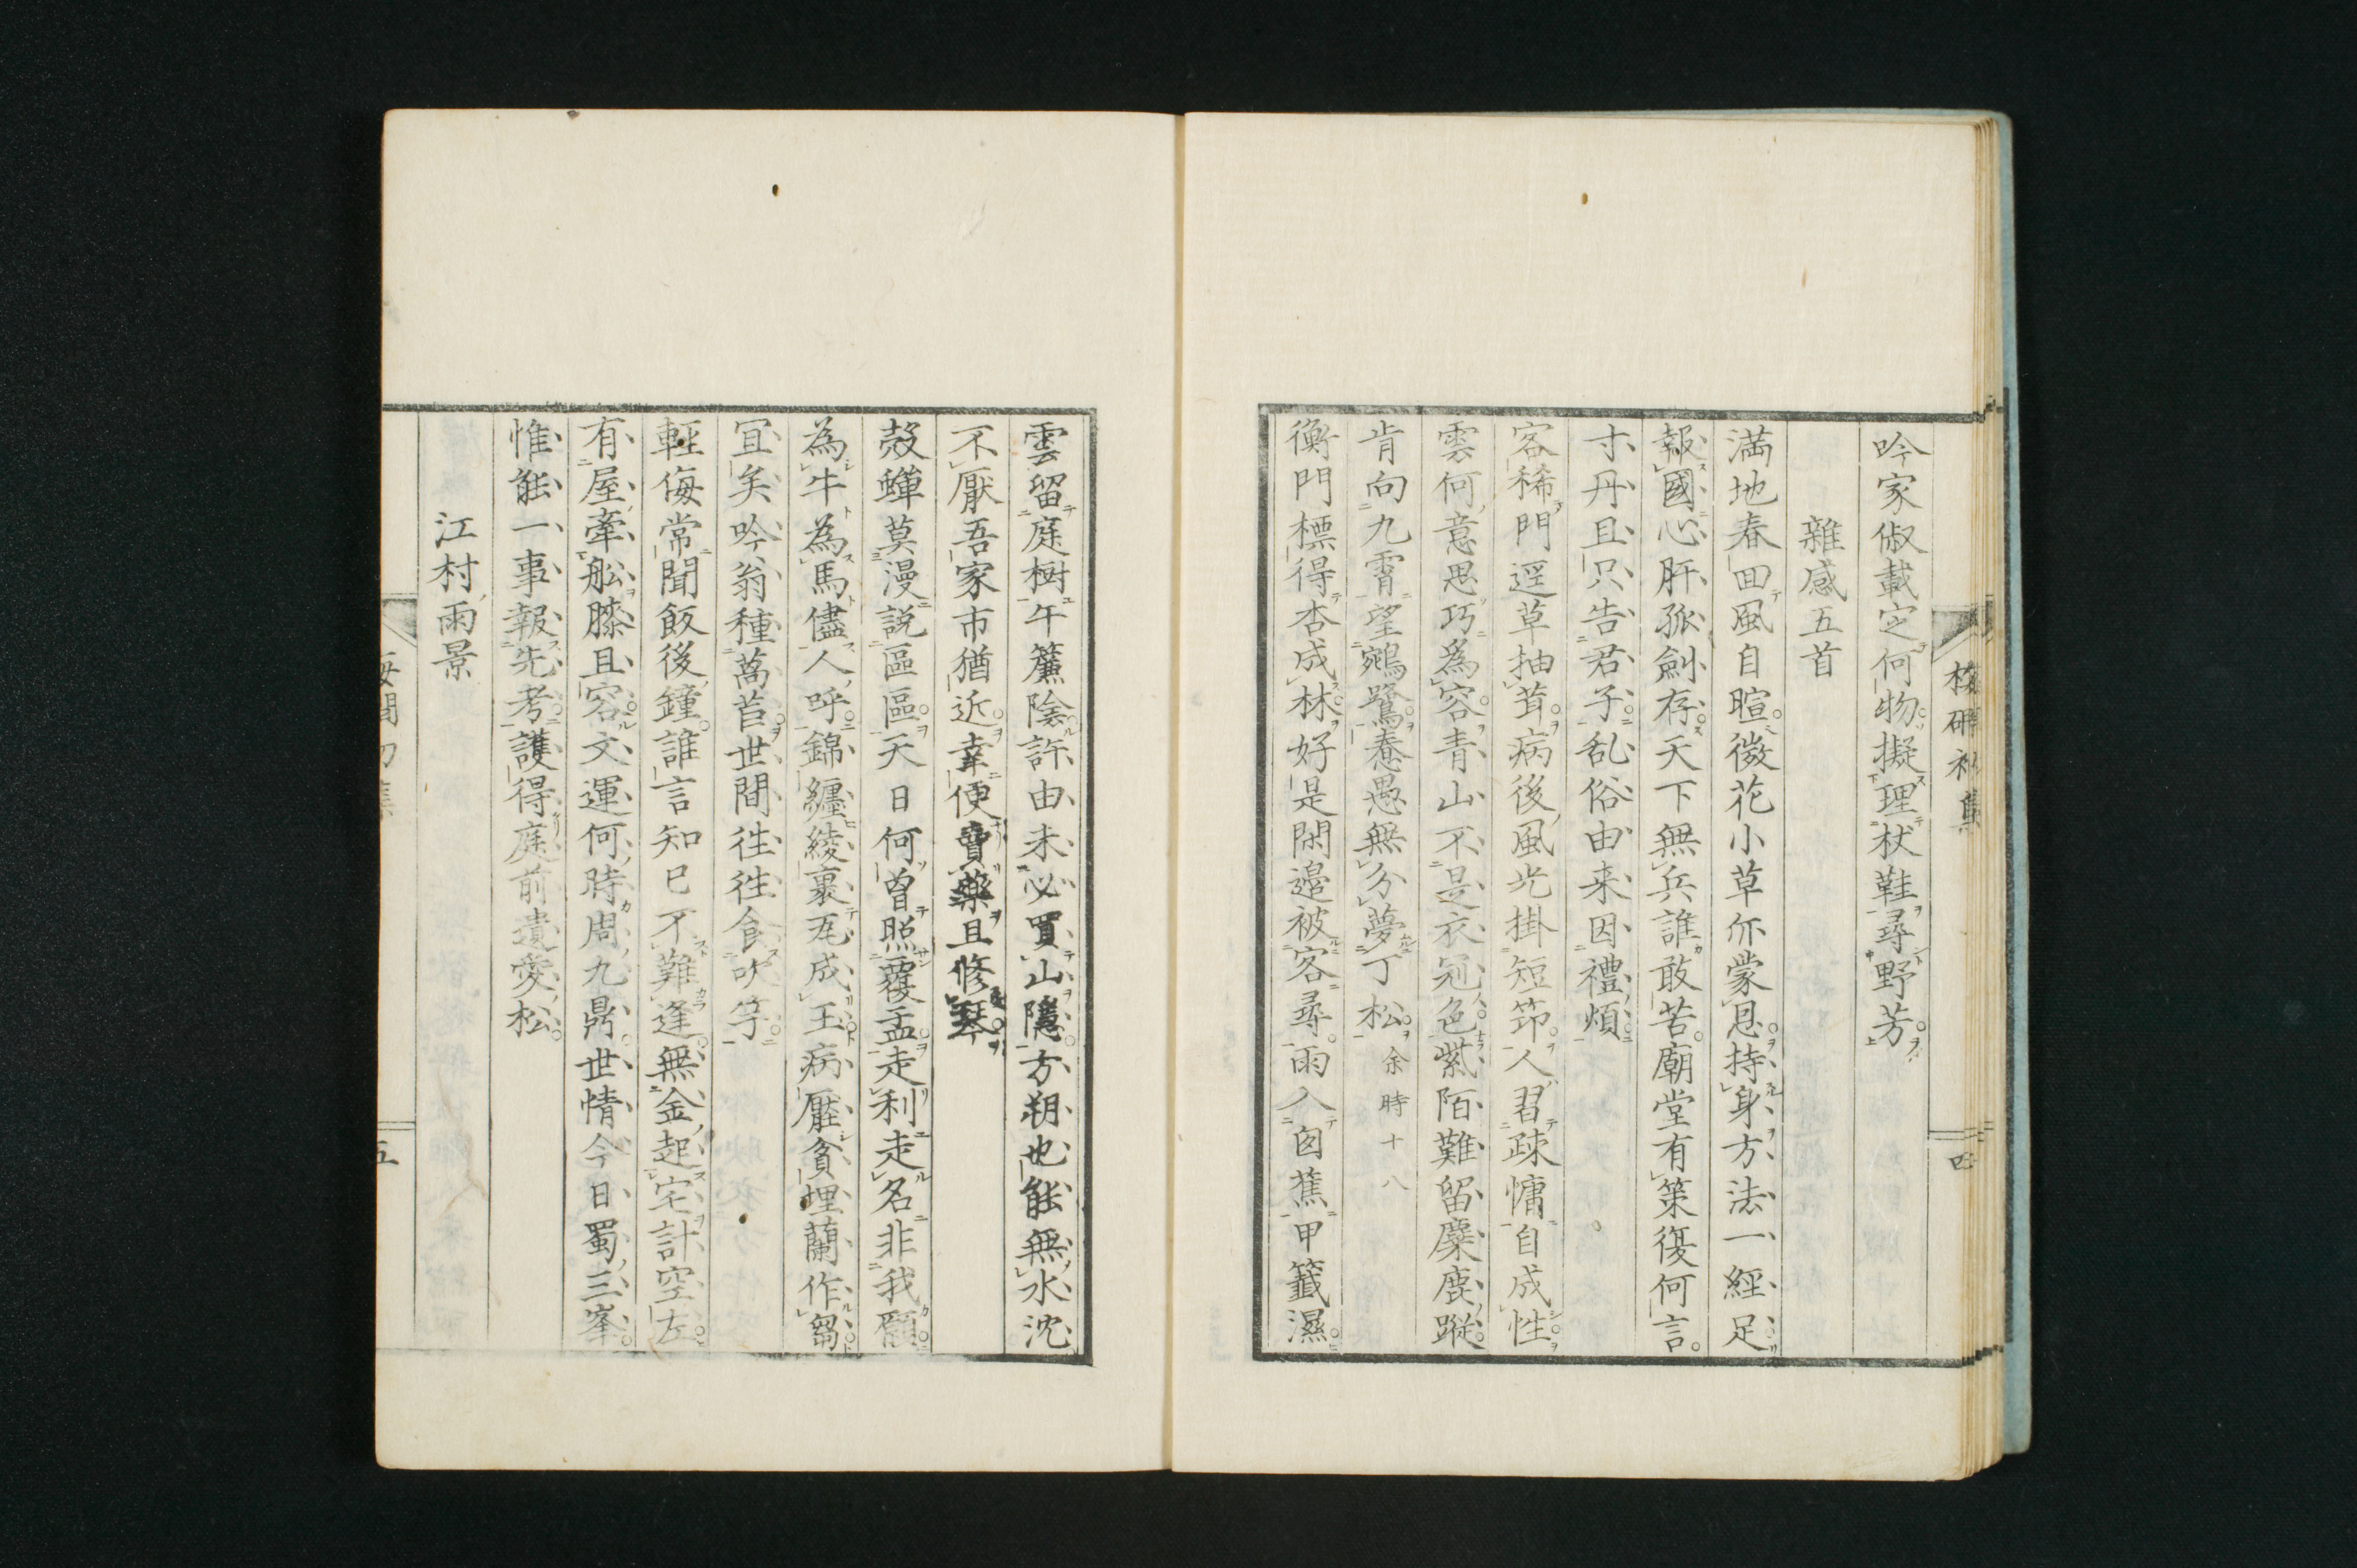 吟家俶載定何物擬理杖鞋尋野芳
雜感五首
満地春回風自暄微花小草尓蒙恩持身方法一經足
報國心肝孤劍存天下無兵誰敢苦廟堂有策復何言
寸丹且只告君子乱俗由来因禮煩
客稀門逕草抽茸病後風光掛短笻人習疎慵自成性
雲何意思巧為容青山不是衣冠色紫陌難留麋鹿蹤
肯向九霄望鵷鷺惷愚無分夢丁松 余時十八
衡門標得杏成林好是閑邉被客尋雨入囱蕉甲籤濕
雲留庭樹午簾陰許由未必買山隱方朔也能無水沈
不厭吾家市猶近幸便賣藥且修琴
殻蟬莫漫説區區天日何曽照覆盂走利走名非我願
為牛為馬儘人呼錦纏綾裹瓦成玉病壓貧埋蘭作芻
冝矣吟翁種萬苔世間徃徃食吹竽
輕侮常聞飯後鐘誰言知已不難逢無金起宅計空左
有屋牽舩膝且容文運何時周九鼎世情今日蜀三峯
惟能一事報先考護得庭前遺愛松
江村雨景
四
五